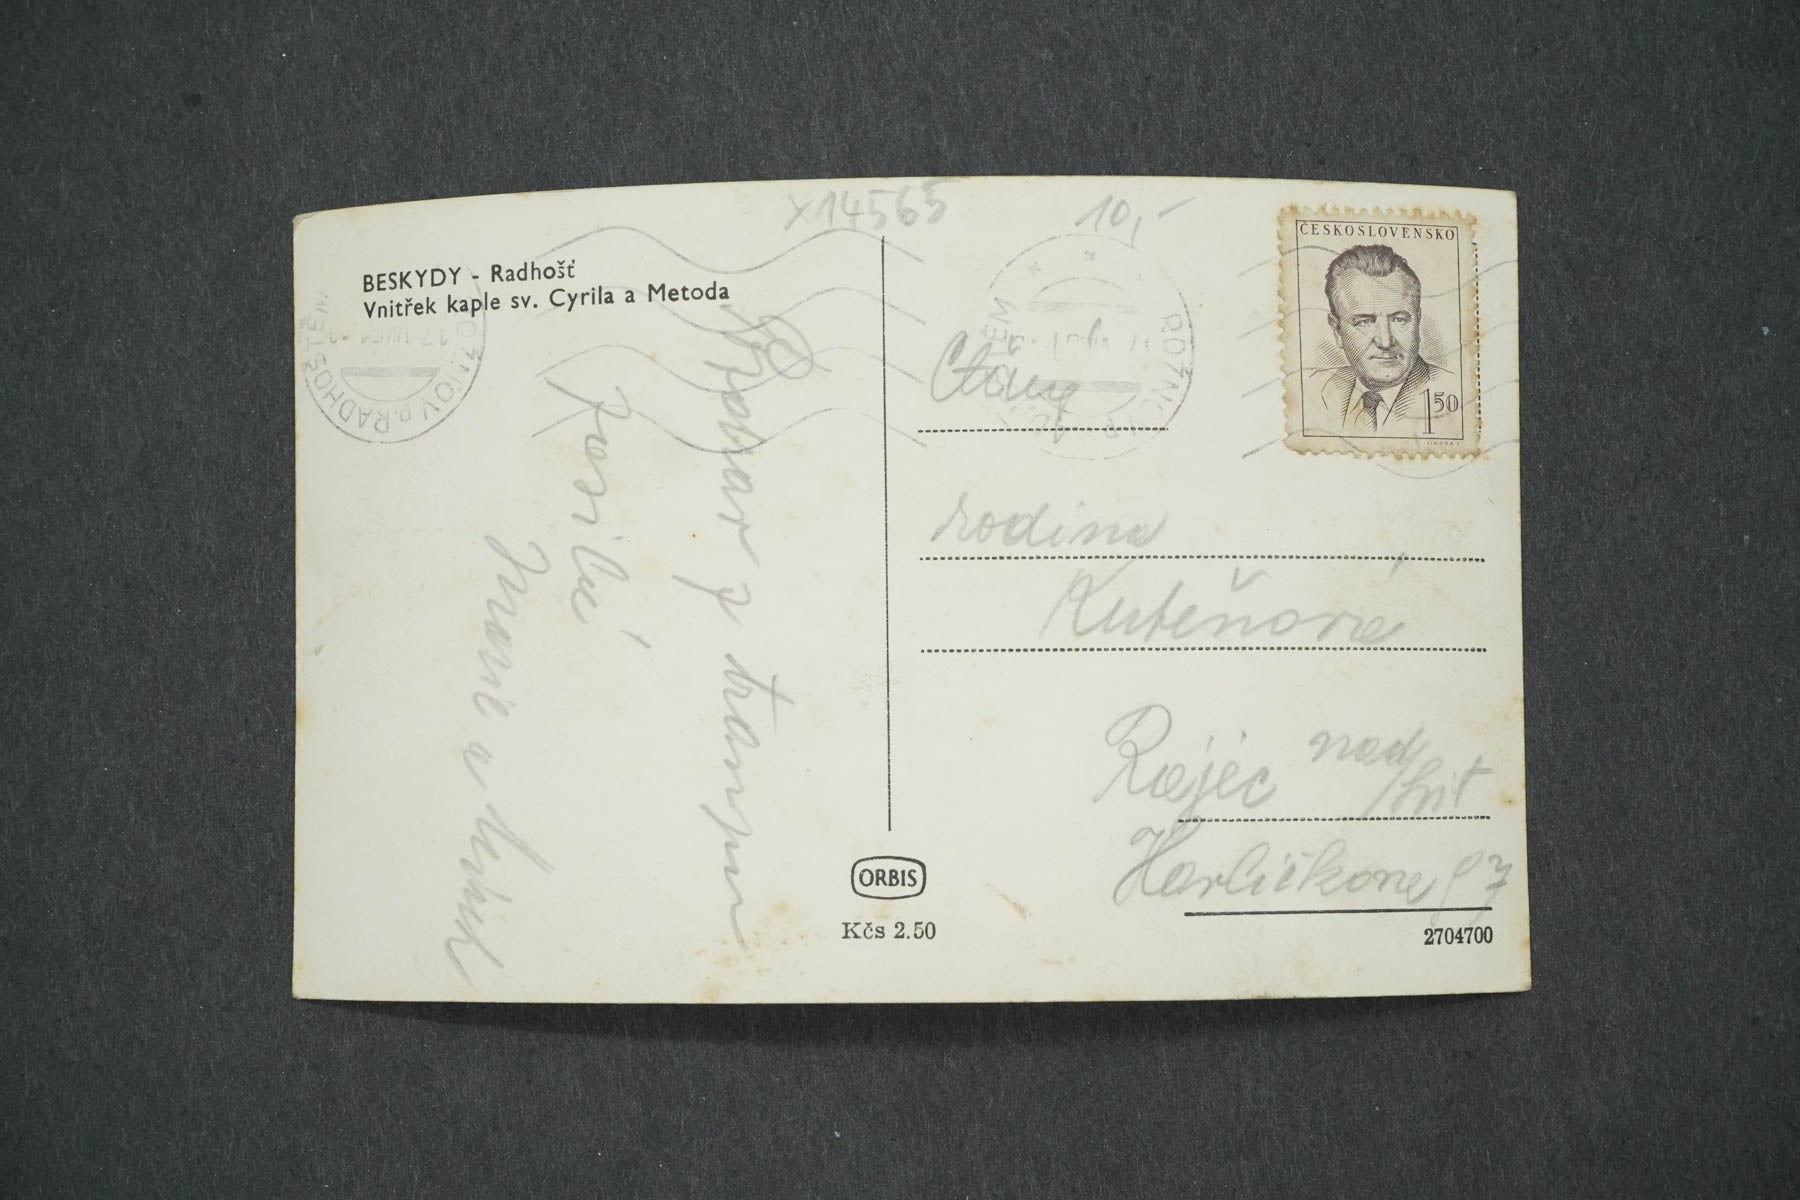 X14565
10,-
BESKYDY - Radhošť
Vnitřek kaple sv. Cyrila a Metoda
ROŽNOV p. RADHOŠTĚM
17 VIII 51
ROŽNOV p. RADHOŠTĚM
ČESKOSLOVENSKO
1 50
Pozdrav z trampu
posílá
Marie a
Ctěná
rodina
Kuteňová
Rajec nad
Svit
Havlíčkova 97
ORBIS
Kčs 2.50
2704700